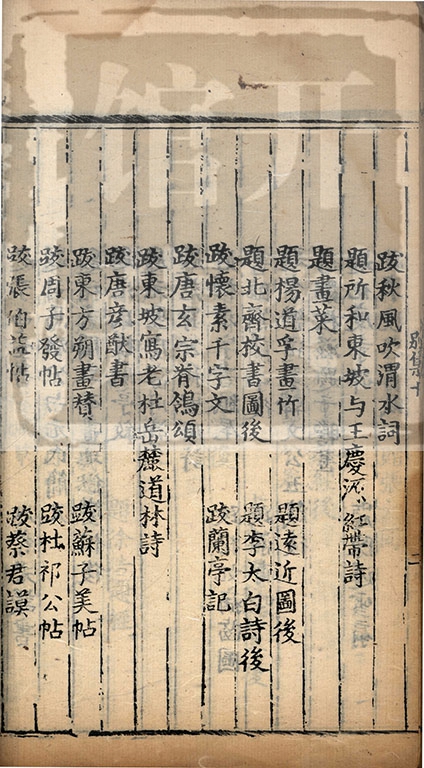 別集十
跋秋風吹渭水詞
題所和東坡与王慶源紅帶詩
題畫菜
題楊道孚畫竹 題遠近圖後
題北齊校書圖後 題李太白詩後
跋懷素千字文 跋蘭亭記
跋唐玄宗脊鴒頌
跋東坡寫老杜岳麓道林詩
跋唐彥猷書
跋東方朔畫贊 跋蘇子美帖
跋周子發帖 跋杜祁公帖
跋張伯益帖 跋蔡君謨
馆开